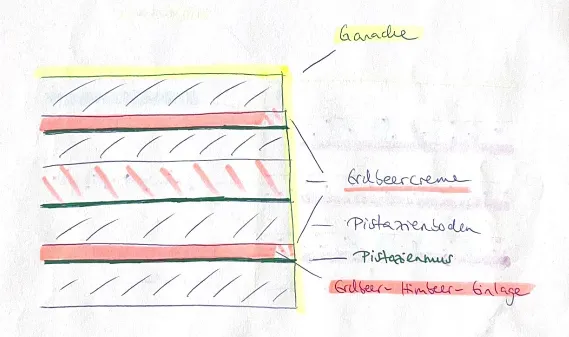 Ganache
Erdbeercreme
Pistazienboden
Pistazienmus
Erdbeer-Himbeer-Einlage